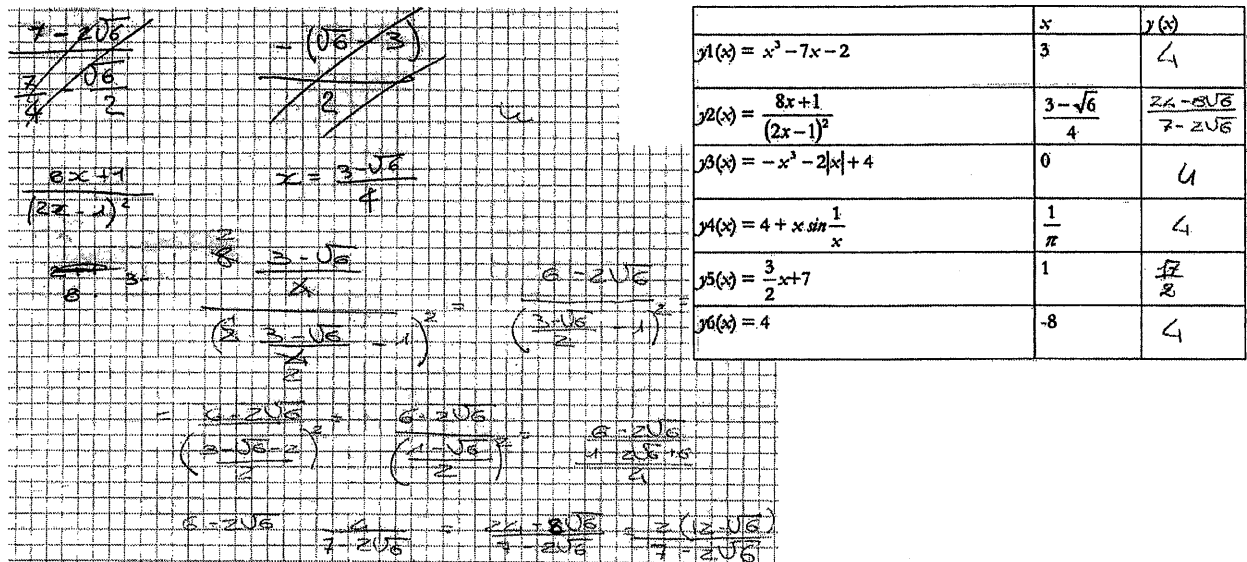 7 - 2√6
7/4 - √6/2
- (√6 - 3)
2
(8x+1)/(2x-1)²
x = (3-√6)/4
8 · 3-
(2 (3-√6))/(2 (3-√6)/2 - 1)² = (6 - 2√6)/((3-√6)/2 - 1)² =
= (6-2√6)/((3-√6-2)/2)² = (6-2√6)/((1-√6)/2)² = (6-2√6)/((1-2√6+6)/4)
6-2√6 4/(7-2√6) = (24-8√6)/(7-2√6) = 2(12-√6)/(7-2√6)
x y (x)
y1(x) = x³ − 7x − 2 3 4
y2(x) = (8x+1)/(2x−1)² (3−√6)/4 (24-8√6)/(7-2√6)
y3(x) = −x³ − 2|x| + 4 0 4
y4(x) = 4 + x sin 1/x 1/π 4
y5(x) = 3/2 x+7 1 17/2
y6(x) = 4 -8 4